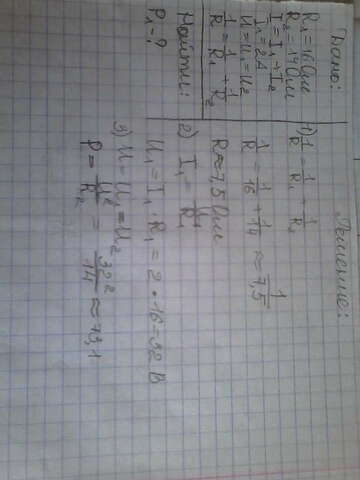 Дано:
R₁=16 Ом
R₂=14 Ом
I=I₁+I₂
I₁=2А
U=U₁=U₂
1/R=1/R₁+1/R₂
Найти:
P₂-?
Решение:
1) 1/R=1/R₁+1/R₂
1/R=1/16+1/14≈1/7,5
R≈7,5 Ом
2) I₁=U₁/R₁
U₁=I₁·R₁=2·16=32 В
3) U=U₁=U₂
P=U²/R₂=32²/14≈73,1